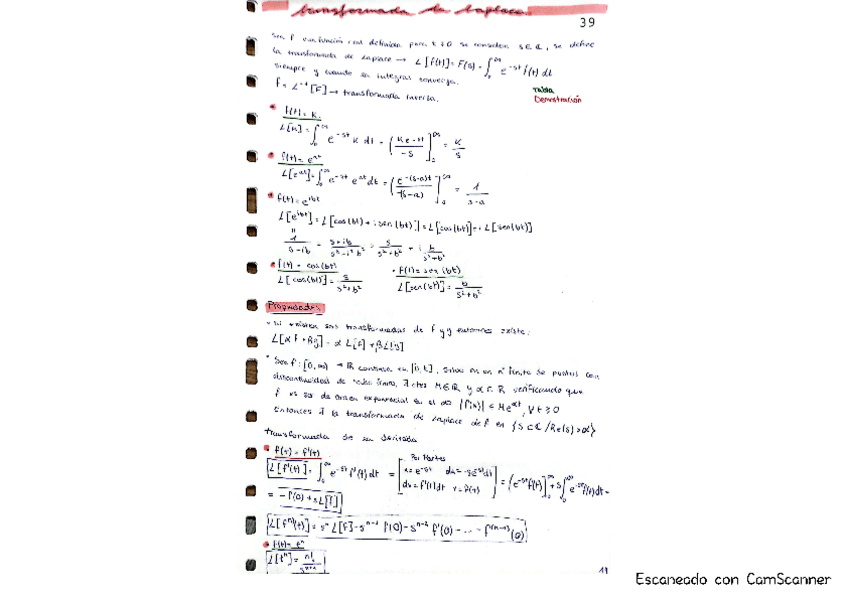 transformada de Laplace
39
Sea f una función real definida para t≥0 se considera s∈ℂ, se define
la transformada de Laplace → L[f(t)]=F(s)=∫₀^∞ e^-st f(t) dt
siempre y cuando la integral converja.
f = L^-1[F] → transformada inversa.
Tabla
Demostración
• f(t)= K
L[K]=∫₀^∞ e^-st K dt = (K e^-st / -s]₀^∞ = K/s
• f(t)= e^at
L[e^at]=∫₀^∞ e^-st e^at dt = (e^-(s-a)t / -(s-a)]₀^∞ = 1/(s-a)
• f(t)= e^ibt
L[e^ibt]=L[cos(bt)+i sen(bt)]=L[cos(bt)]+i L[sen(bt)]
1/(s-ib) = (s+ib)/(s²-i²b²) = s/(s²+b²) + i b/(s²+b²)
• f(t)= cos(bt) • f(t)= sen(bt)
L[cos(bt)]= s/(s²+b²) L[sen(bt)]= b/(s²+b²)
Propiedades
• Si existen las transformadas de f y g entonces existe:
L[αf+βg]=αL[f]+βL[g]
• Sea f:[0,∞) → ℝ continua en [0,∞), salvo en un nº finito de puntos con
discontinuidad de salto finito, ∃ ctes M∈ℝ y α∈ℝ verificando que
f es de orden exponencial en el ∞ |f(t)| ≤ Me^αt, ∀t≥0
Entonces ∃ la transformada de Laplace de f en {s∈ℂ/Re(s)>α}
transformada de su derivada
• f(t)= f'(t)
L[f'(t)]=∫₀^∞ e^-st f'(t)dt = [Por Partes u=e^-st du=-se^-st dt dv=f'(t)dt v=f(t)] = (e^-st f(t)]₀^∞ + s∫₀^∞ e^-st f(t)dt =
= -f(0)+sL[f]
L[f^n(t)]=s^n L[f]-s^n-1 f(0)-s^n-2 f'(0)-...-f^(n-1)(0)
• f(t)= t^n
L[t^n]= n!/s^n+1
Escaneado con CamScanner